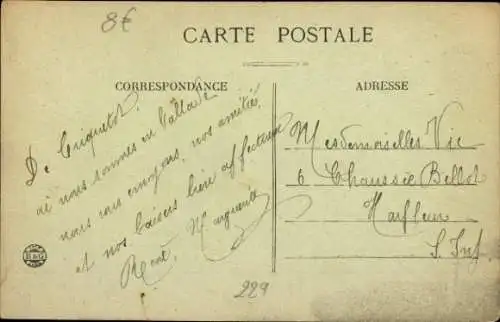 8€
CARTE POSTALE
CORRESPONDANCE
De Criquetot,
où nous sommes en ballade
nous vous envoyons, nos amitiés,
et nos baisers bien affectueux
René, Marguerite
ADRESSE
Mesdemoiselles Vic
6 Chaussée Bellot
Harfleur
S. Inf
B&G
229